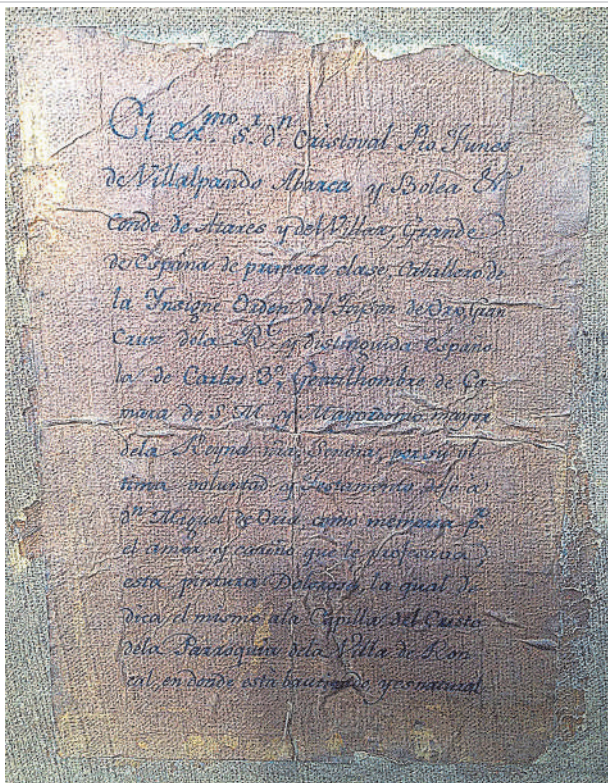 El Ex.mo S.r d.n Cristoval Pio Funes
de Villalpando Abarca y Bolea &.
Conde de Atares y del Villar, Grande
de España de primera clase, Caballero de
la Ynsigne Orden del Toyson de Oro, Gran
Cruz dela R.l y distinguida Españo
la de Carlos 3.º, Gentilhombre de Ca
mara de S. M. y Mayordomo mayor
dela Reyna nra. Señora, por su ul
tima voluntad y Testamento dejó á
d.n Miguel de como memoria p.r
el amor y cariño que le profesaba,
esta pintura Dolorosa, la qual de
dica el mismo ala Capilla del Cristo
dela Parroquia dela Villa de Ron
cal, en donde está bautizado, y es natural